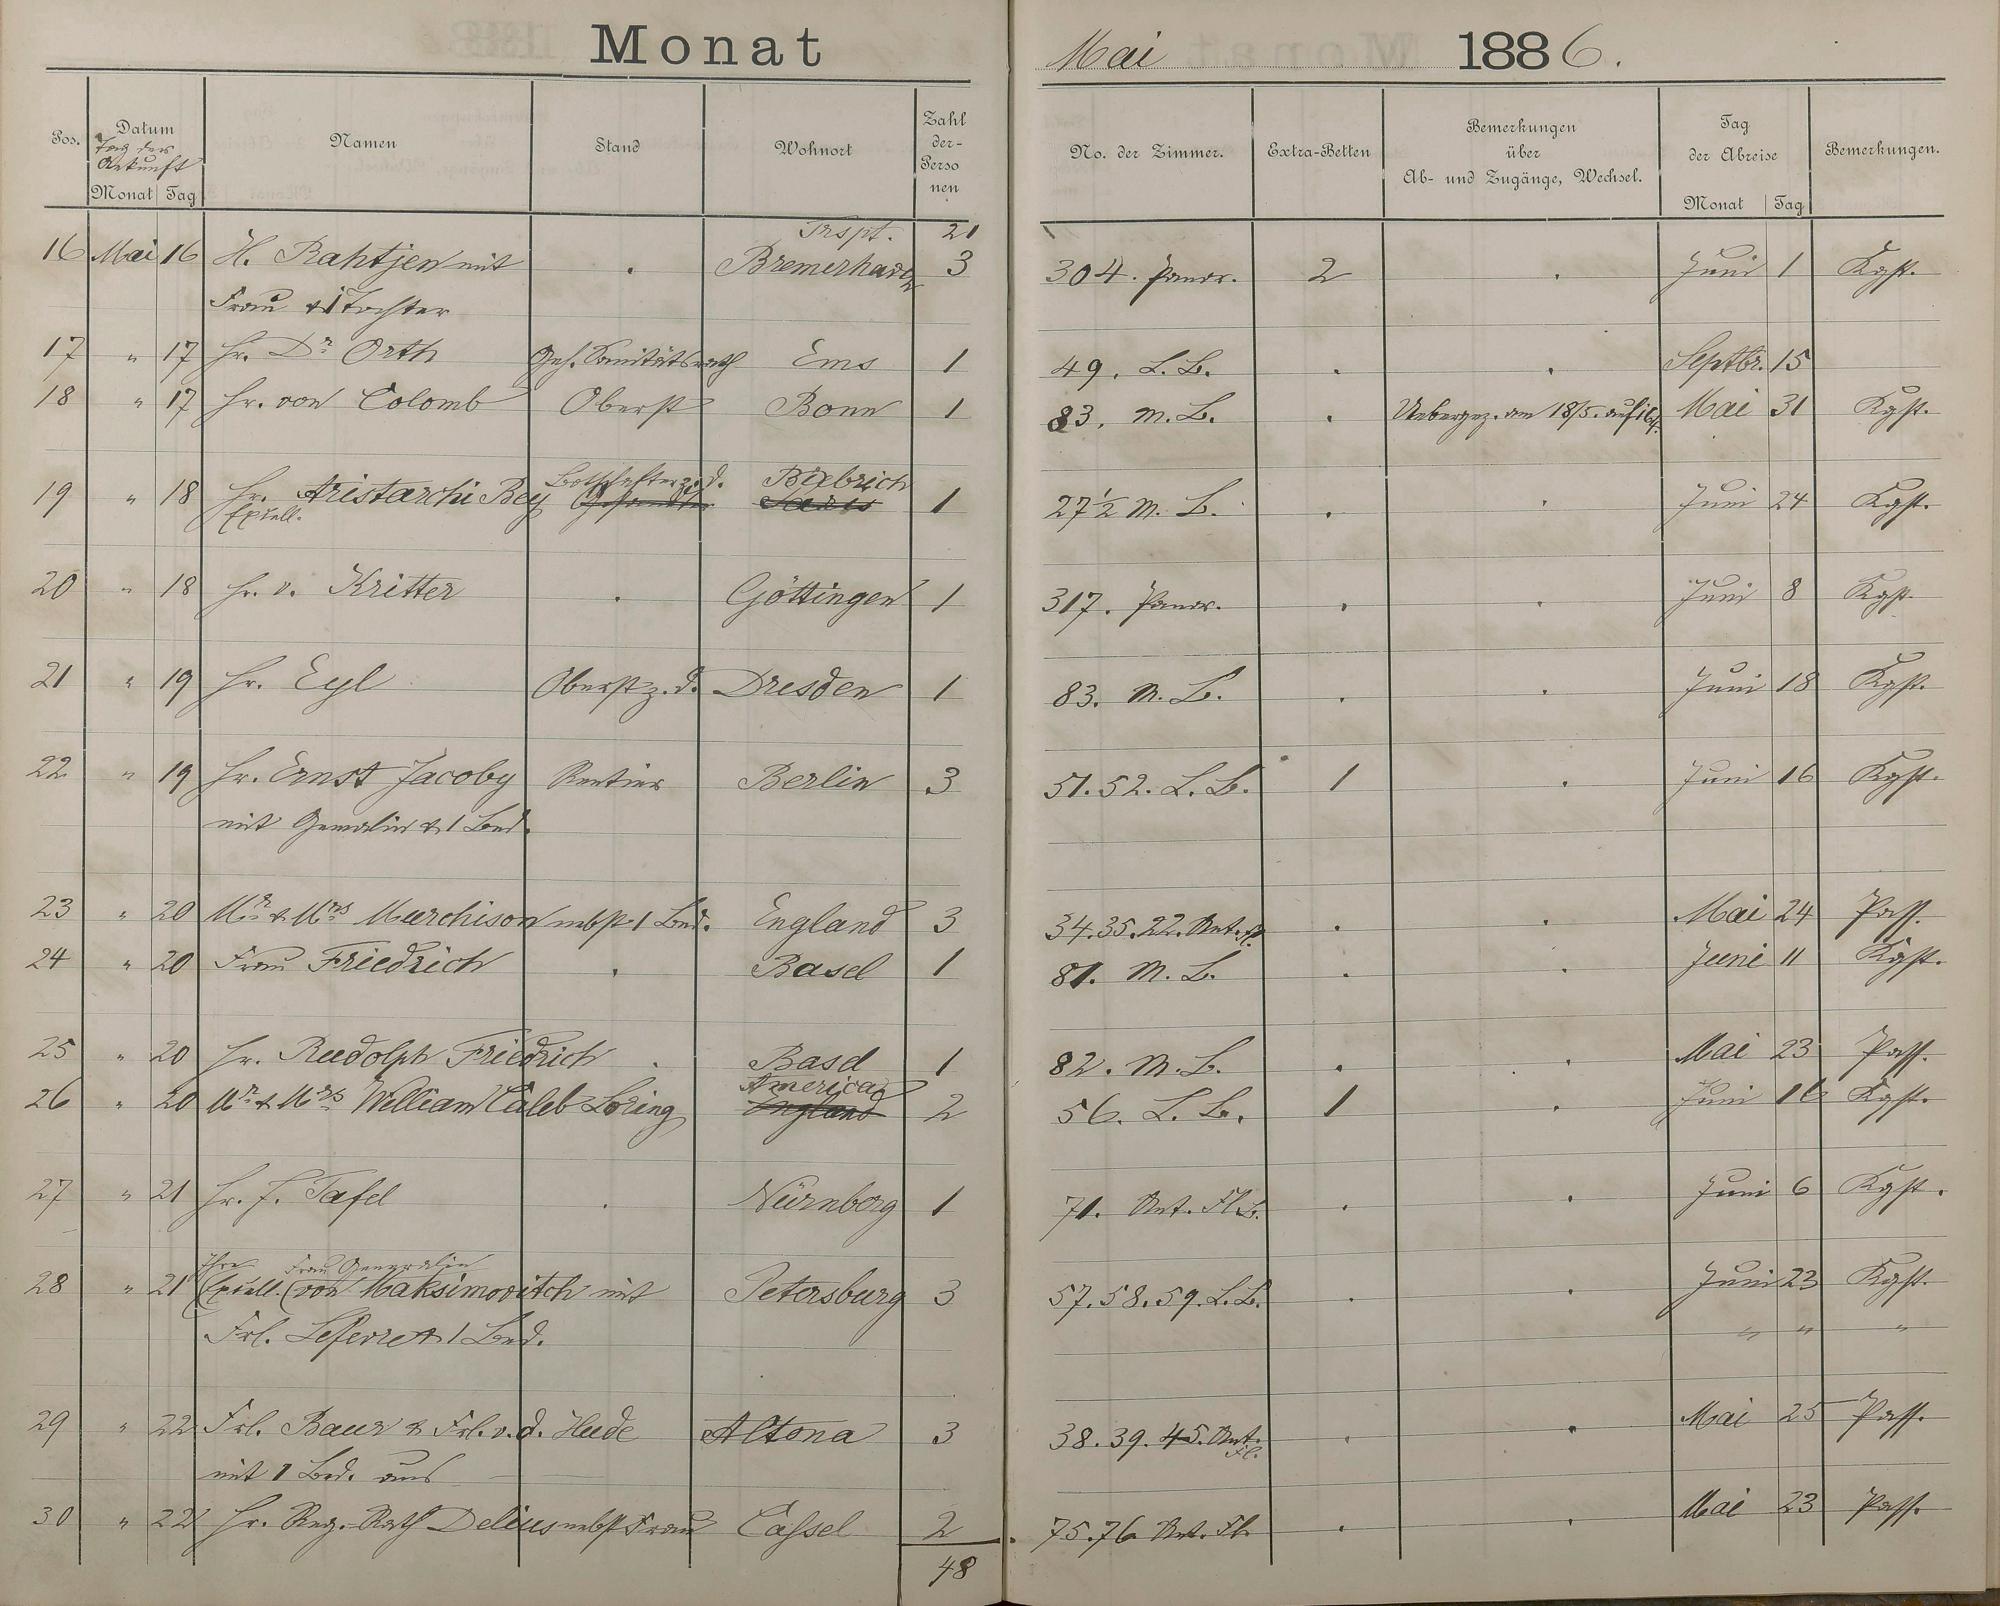 Monat Mai 1886.
Pos. Datum Namen Stand Wohnort Zahl der Personen No. der Zimmer. Extra-Betten Bemerkungen über Ab- und Zugänge, Wechsel. Tag der Abreise Bemerkungen.
Tag der Ankunft
Monat Tag Monat Tag
Trspt. 21
16 Mai 16 H. Rahtjen mit . Bremerhaven 3 304. Parterr. 2 . Juni 1 Kgst.
Frau & 1 Tochter
17 " 17 Hr. Dr. Orth Geh. Sanitätsrath Ems 1 49. L. B. . . Septbr. 15
18 " 17 Hr. von Colomb Oberst Bonn 1 83. M. B. . Uebergez. am 18/5. auf Mai 31 Kgst.
Botschafter z. d. Biebrich
19 " 18 Hr. Aristarchi Bey Gesandter Paris 1 27 1/2 M. B. . . Juni 24 Kgst.
Excell.
20 " 18 Hr. v. Kritter . Göttingen 1 317. . . Juni 8 Kgst.
21 " 19 Hr. Eyl Oberst z. d. Dresden 1 83. M. B. . . Juni 18 Kgst.
22 " 19 Hr. Ernst Jacoby Rentier Berlin 3 51. 52. L. B. 1 . Juni 16 Kgst.
mit Gemalin & 1 Bed.
23 " 20 Mr. & Mrs Murchison nebst 1 Bed. England 3 34. 35. 22. Unt. Fl. . . Mai 24 Pass.
24 " 20 Frau Friedrich . Basel 1 81. M. B. . . Juni 11 Kgst.
25 " 20 Hr. Rudolph Friedrich . Basel 1 82. M. B. . . Mai 23 Pass.
America
26 " 20 Mr. & Mrs William Caleb Loring England 2 56. L. B. 1 . Juni 16 Kgst.
27 " 21 Hr. J. Tafel . Nürnberg 1 71. Unt. Fl. B. . . Juni 6 Kgst.
Ihre Frau Generalin
28 " 21 Excell. (von Maksimovitch mit Petersburg 3 57. 58. 59. L. B. . . Juni 23 Kgst.
Frl. Lefevre & 1 Bed. " " "
29 " 22 Frl. Baur & Frl. v. d. Hude Altona 3 38. 39. 45. Unt. Fl. . . Mai 25 Pass.
mit 1 Bed. aus
30 " 22 Hr. Reg.-Rath Delius nebst Frau Cassel 2 75. 76 Unt. Fl. . . Mai 23 Pass.
48